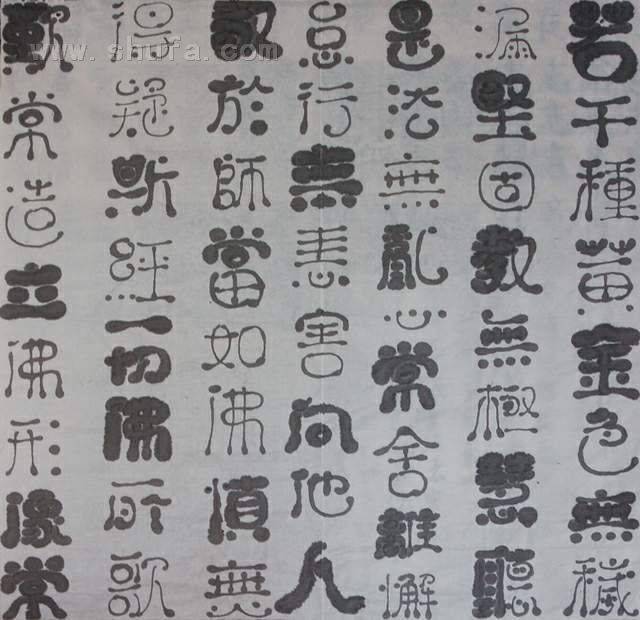 若干種黃金色無穢
漏堅固教無極慧聽
是法無亂心常舍離懈
怠行恚害向他人
敬於師當如佛慎無
得疑斯經一切佛所歌
歎常造立佛形像常
www.shufa.com